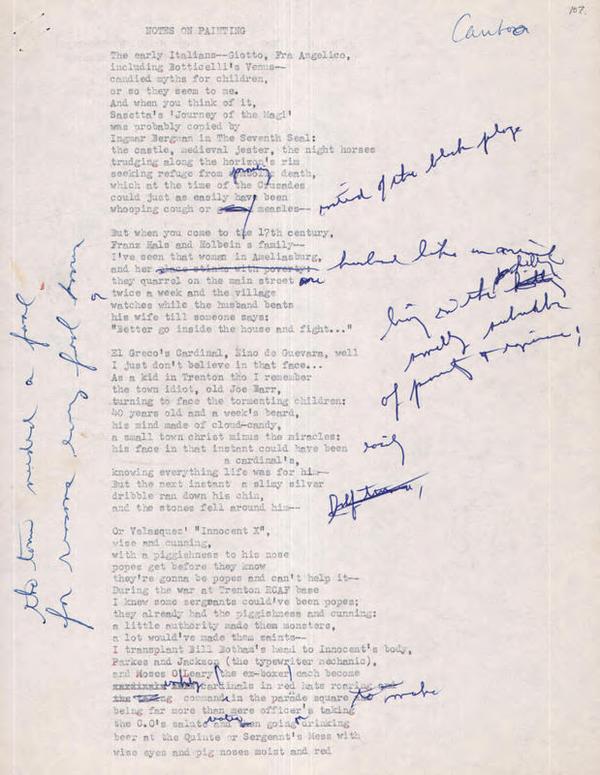 107.
NOTES ON PAINTING
The early Italians--Giotto, Fra Angelico,
including Botticelli's Venus--
candied myths for children,
or so they seem to me.
And when you think of it,
Sasetta's 'Journey of the Magi'
was probably copied by
Ingmar Bergman in The Seventh Seal:
the castle, medieval jester, the night horses
trudging along the horizon's rim
seeking refuge from death,
which at the time of the Crusades
could just as easily have been
whooping cough or measles--
instead of the black plage
But when you come to the 17th century,
Franz Hals and Holbein s family--
I've seen that woman in Ameliasburg,
and her space stinks with poverty: one husband like
they quarrel on the main street
twice a week and the village
watches while the husband beats
his wife till someone says:
"Better go inside the house and fight..."
living in the
smelly suburbs
of poverty &
El Greco's Cardinal, Nino de Guevara, well
I just don't believe in that face...
As a kid in Trenton tho I remember
the town idiot, old Joe Barr,
turning to face the tormenting children:
40 years old and a week's beard,
his mind made of cloud-candy,
a small town christ minus the miracles:
his face in that instant could have been easily
a cardinal's,
knowing everything life was for him--
But the next instant a slimy silver
dribble ran down his chin,
and the stones fell around him--
the town needed a fool
for reasons every fool knows
Or Velasquez' "Innocent X",
wise and cunning,
with a piggishness to his nose
popes get before they know
they're gonna be popes and can't help it--
During the war at Trenton RCAF base
I knew some sergeants could've been popes;
they already had the piggishness and cunning:
a little authority made them monsters,
a lot would've made them saints--
I transplant Bill Botham's head to Innocent's body,
Parkes and Jackson (the typewriter mechanic),
and Moses O'Leary (the ex-boxer) each become
cardinals in red hats roaring
commands in the parade square to make
being far more than mere officer's taking
the C.O's salute and going drinking
beer at the Quinte or Sergeant's Mess with
wise eyes and pig noses moist and red